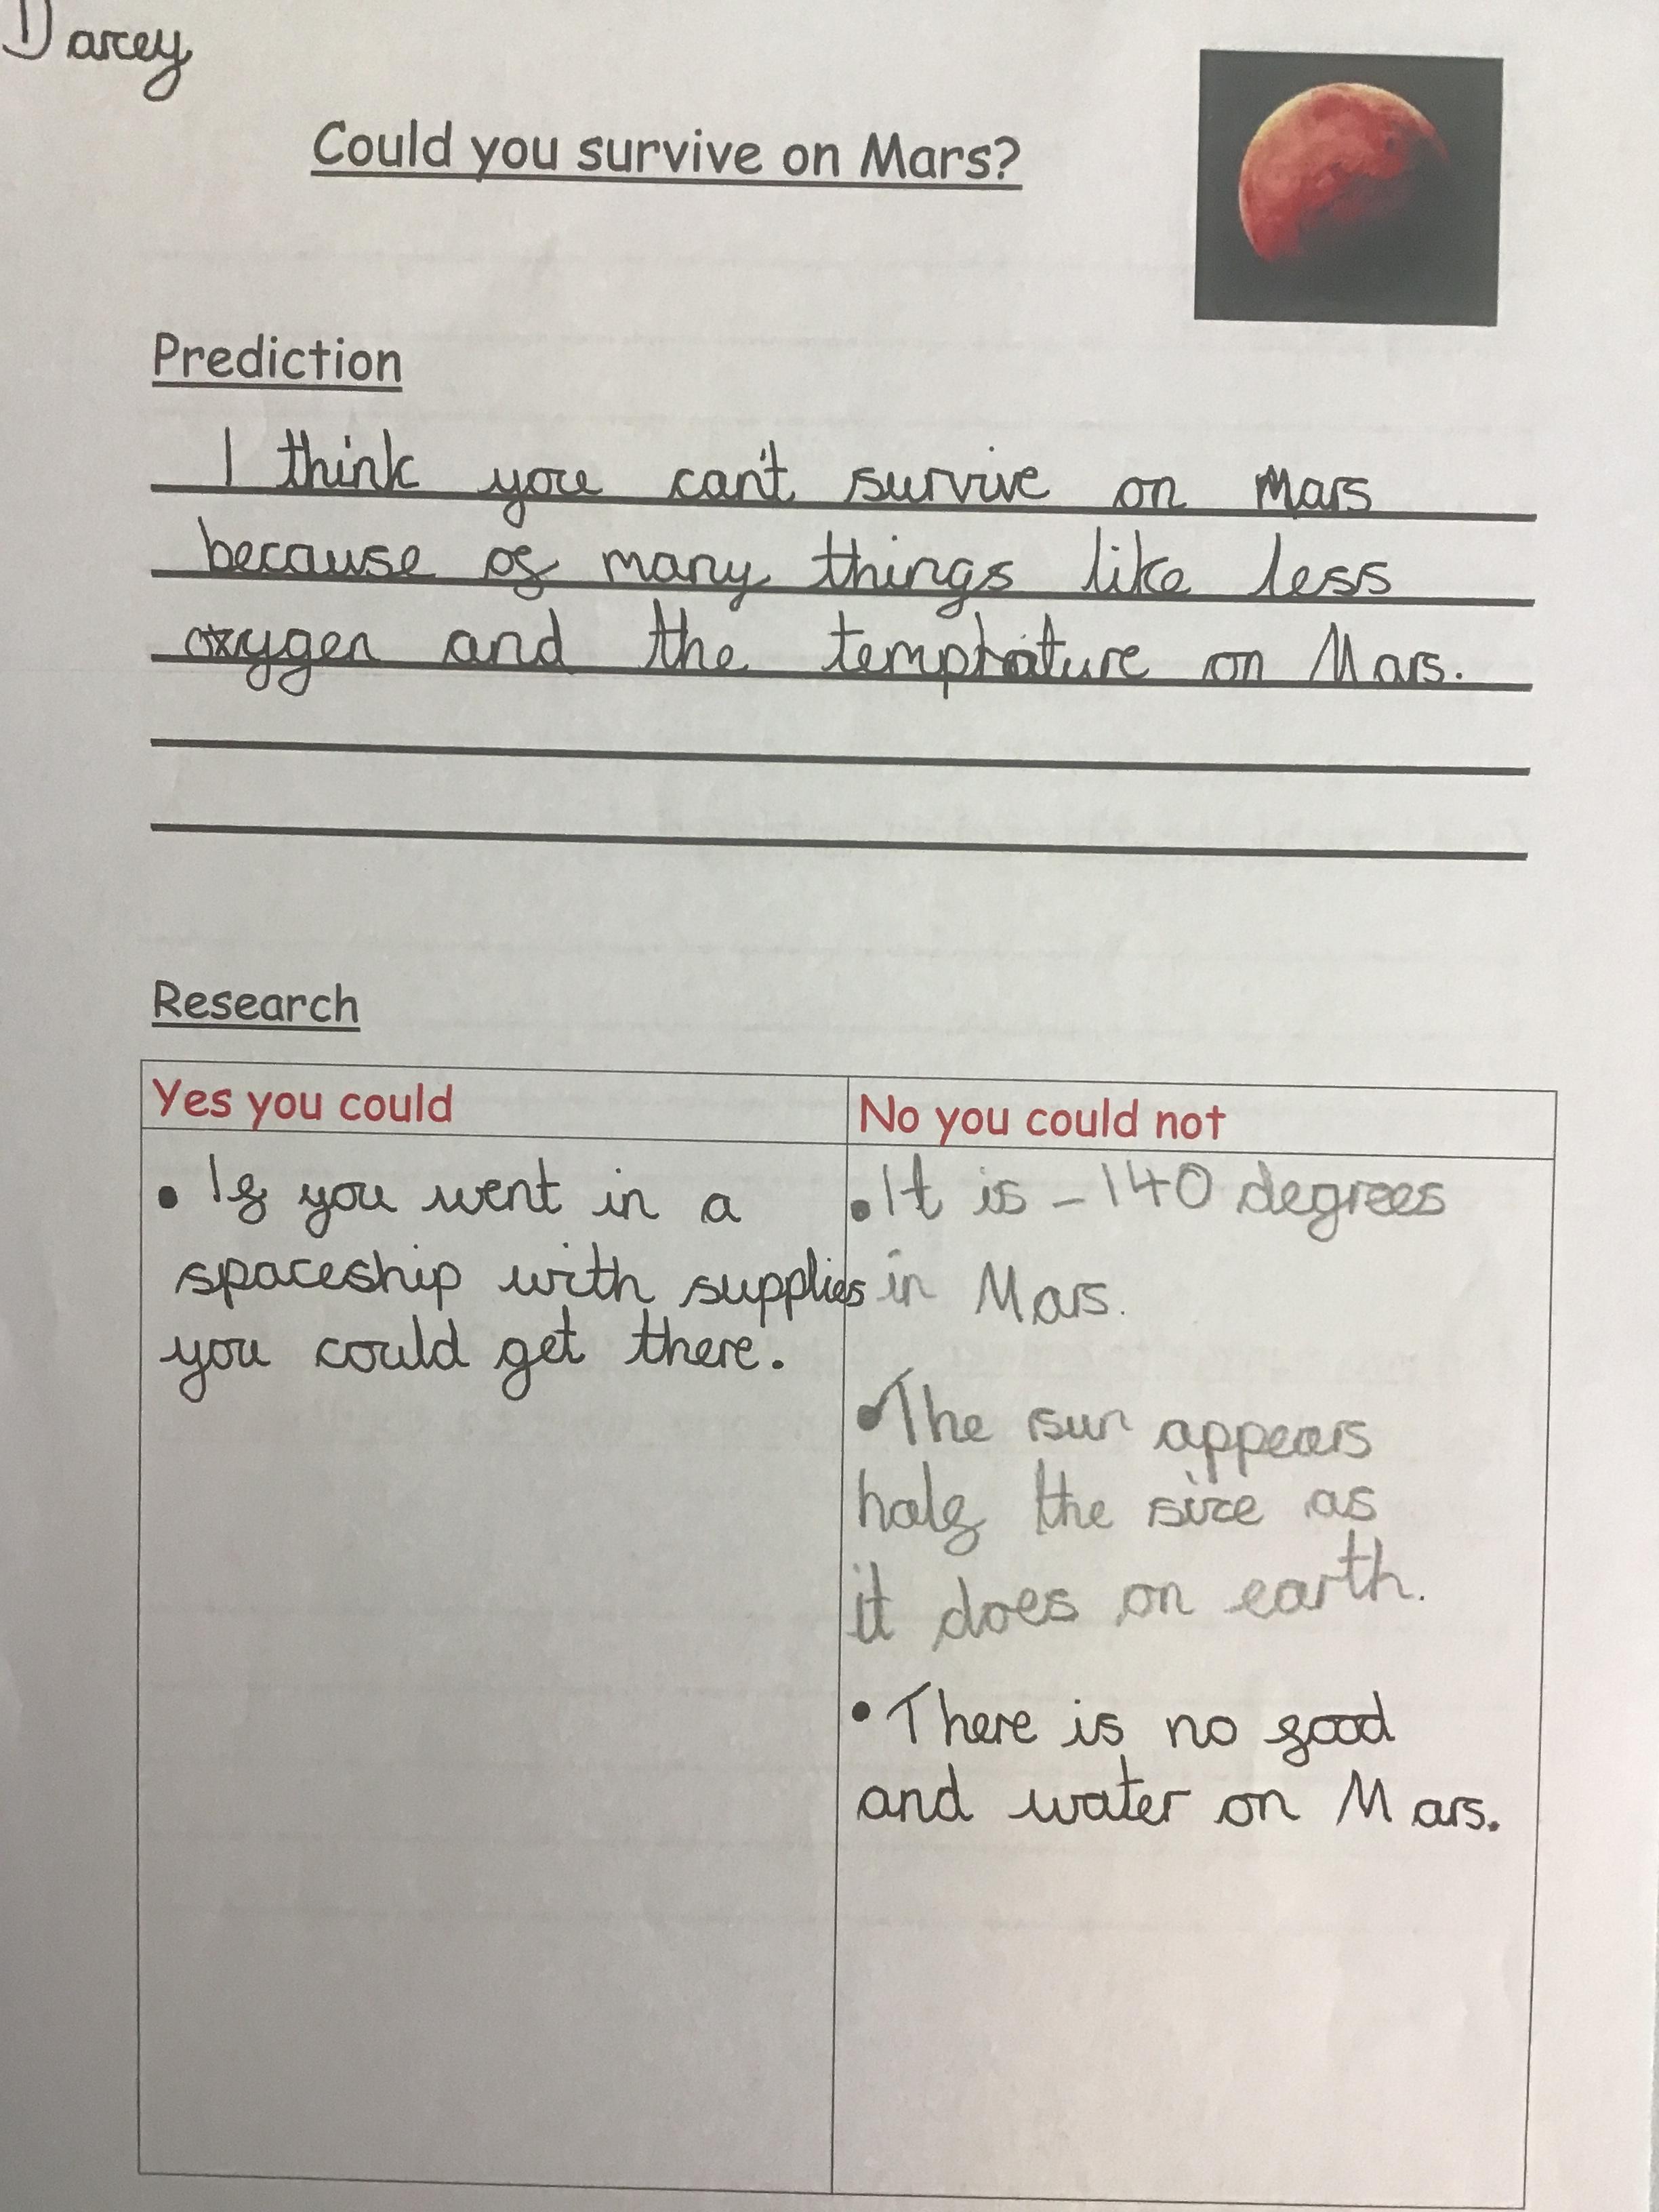 Darcey
Could you survive on Mars?
Prediction
I think you can't survive on Mars
because of many things like less
oxygen and the temprature on Mars.
Research
Yes you could
• If you went in a
spaceship with supplies
you could get there.
No you could not
• It is -140 degrees
in Mars.
• The sun appears
half the size as
it does on earth.
• There is no food
and water on Mars.